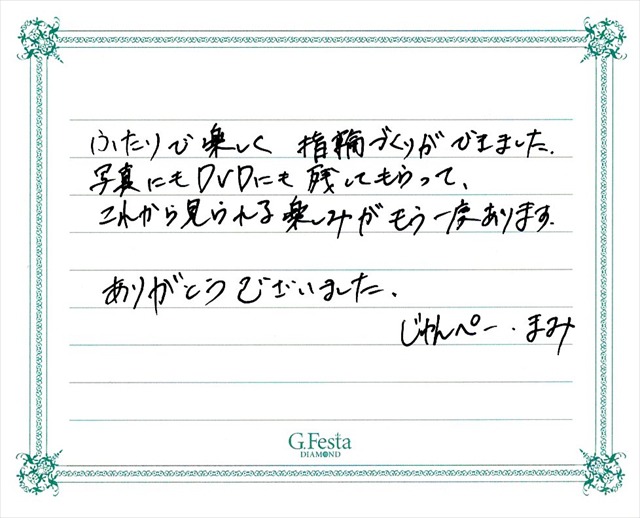 ふたりで楽しく 指輪づくりができました.
写真にもDVDにも 残してもらって、
これから見られる楽しみがもう一度あります.
ありがとうございました.
じゅんぺー.まみ
G.Festa
DIAMOND